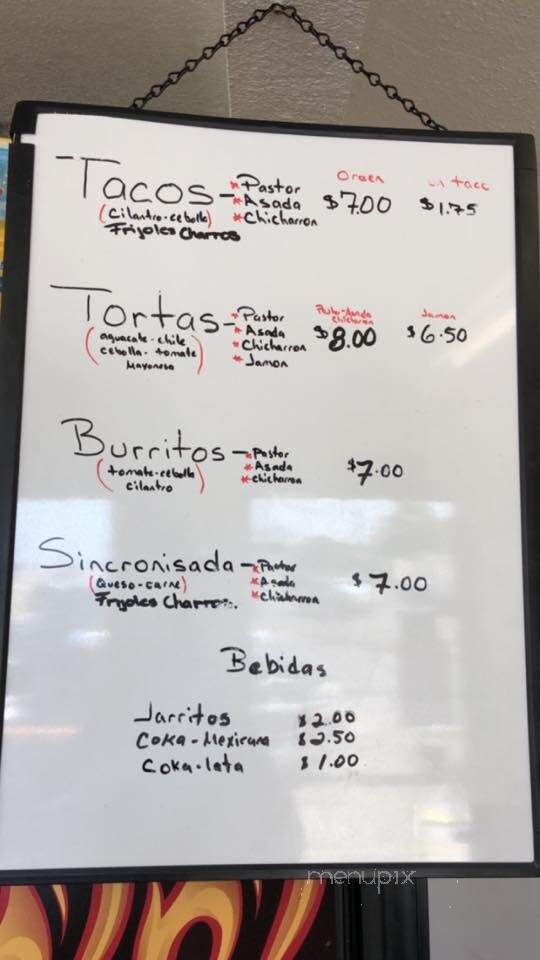 Tacos - * Pastor Orden taco
* Asada $7.00 $1.75
(Cilantro-cebolla) * Chicharron
Frijoles Charros
Tortas - * Pastor Pastor-Asada Jamon
Chicharon
(aguacate-chile * Asada $8.00 $6.50
cebolla-tomate * Chicharron
Mayonesa) * Jamon
Burritos - * Pastor
(tomate-cebolla * Asada $7.00
cilantro) * chicharron
Sincronisada - * Pastor
(Queso-carne) * Asada $7.00
Frijoles Charros. * Chicharron
Bebidas
Jarritos $2.00
Coka-Mexicana $2.50
Coka-lata $1.00
menupix